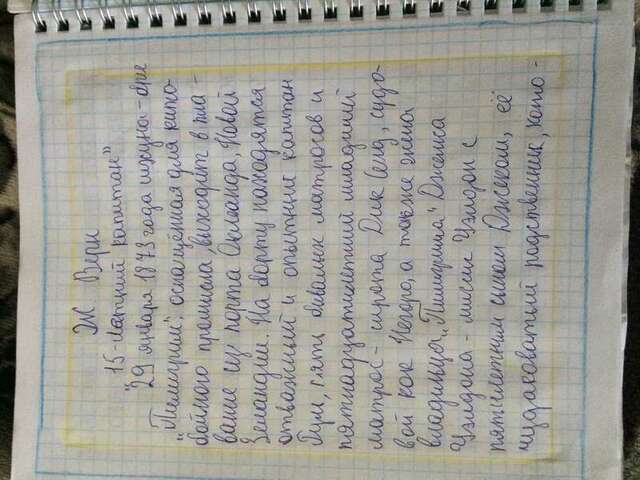 Ж Верн
15-летний капитан"
"29 января 1873 года шхуна-бриг
"Пилигрим", оснащённая для кито-
бойного промысла, выходит в пла-
вание из порта Окленда, Новой
Зеландии. На борту находятся
отважный и опытный капитан
Гул, пять бывалых матросов и
пятнадцатилетний младший
матрос - сирота Дик Сенд, судо-
вой кок Негоро, а также жена
владельца "Пилигрима" Джемса
Уэлдона - миссис Уэлдон с
пятилетним сыном Джеком, её
чудаковатый родственник, кото-